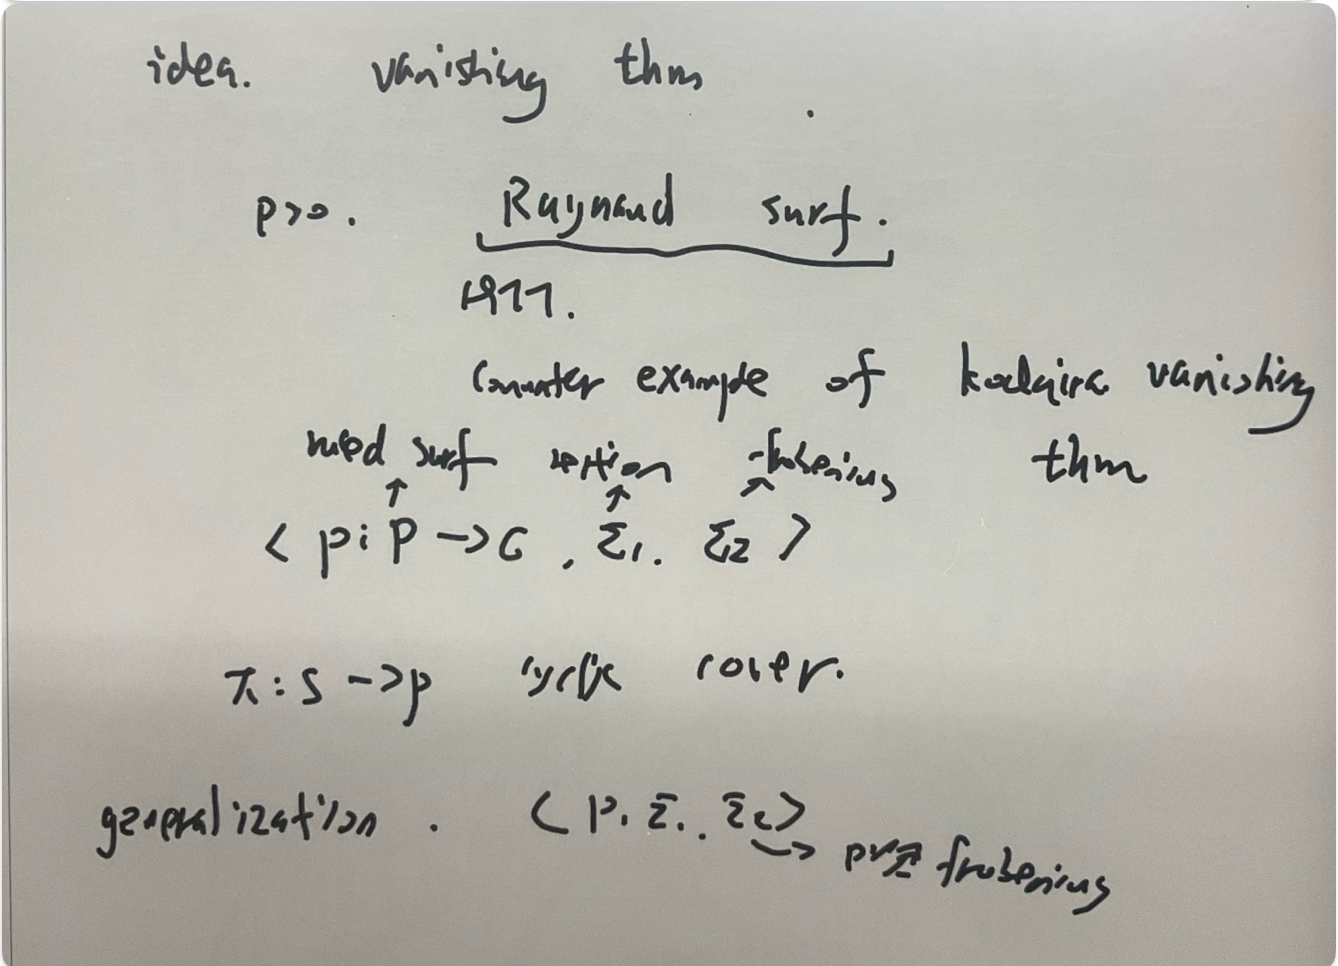 idea. vanishing thm.
p>0. Raynaud surf.
1977.
Counter example of kodaira vanishing
thm
ruled surf section frobenius
↑ ↑ ↗
< p: P -> C, Σ1. Σ2 >
π: S -> p cyclic cover.
generalization. < P, Σ1. Σ2 >
-> frobenius